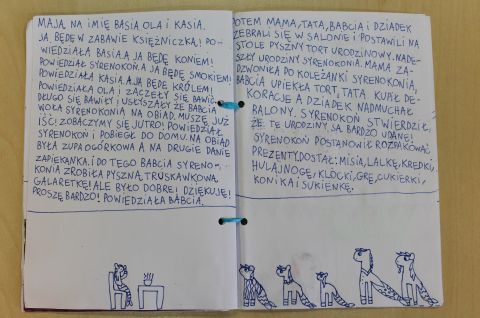 MAJĄ NA IMIĘ BASIA OLA I KASIA.
JA BĘDĘ W ZABAWIE KSIĘŻNICZKĄ! PO-
WIEDZIAŁA BASIA. A JA BĘDĘ KONIEM!
POWIEDZIAŁ SYRENOKOŃ. A JA BĘDĘ SMOKIEM!
POWIEDZIAŁA KASIA. A JA BĘDĘ KRÓLEM!
POWIEDZIAŁA OLA I ZACZĘŁY SIĘ BAWIĆ.
DŁUGO SIĘ BAWIŁY I USŁYSZAŁY ŻE BABCIA
WOŁA SYRENOKONIA NA OBIAD. MUSZĘ JUŻ
IŚĆ! ZOBACZYMY SIĘ JUTRO! POWIEDZIAŁ
SYRENOKOŃ I POBIEGŁ DO DOMU. NA OBIAD
BYŁA ZUPA OGÓRKOWA A NA DRUGIE DANIE
ZAPIEKANKA. I DO TEGO BABCIA SYRENO-
KONIA ZROBIŁA PYSZNĄ, TRUSKAWKOWĄ
GALARETKĘ! ALE BYŁO DOBRE! DZIĘKUJĘ!
PROSZĘ BARDZO! POWIEDZIAŁA BABCIA.
POTEM MAMA, TATA, BABCIA I DZIADEK
ZEBRALI SIĘ W SALONIE I POSTAWILI NA
STOLE PYSZNY TORT URODZINOWY. NADE-
SZŁY URODZINY SYRENOKONIA. MAMA ZA-
DZWONIŁA DO KOLEŻANKI SYRENOKONIA,
BABCIA UPIEKŁA TORT, TATA KUPIŁ DE-
KORACJE A DZIADEK NADMUCHAŁ
BALONY. SYRENOKOŃ STWIERDZIŁ,
ŻE TE URODZINY SĄ BARDZO UDANE!
SYRENOKOŃ POSTANOWIŁ ROZPAKOWAĆ
PREZENTY. DOSTAŁ: MISIA, LALKĘ, KREDKI,
HULAJNOGĘ, KLOCKI, GRĘ, CUKIERKI,
KONIKA I SUKIENKĘ.